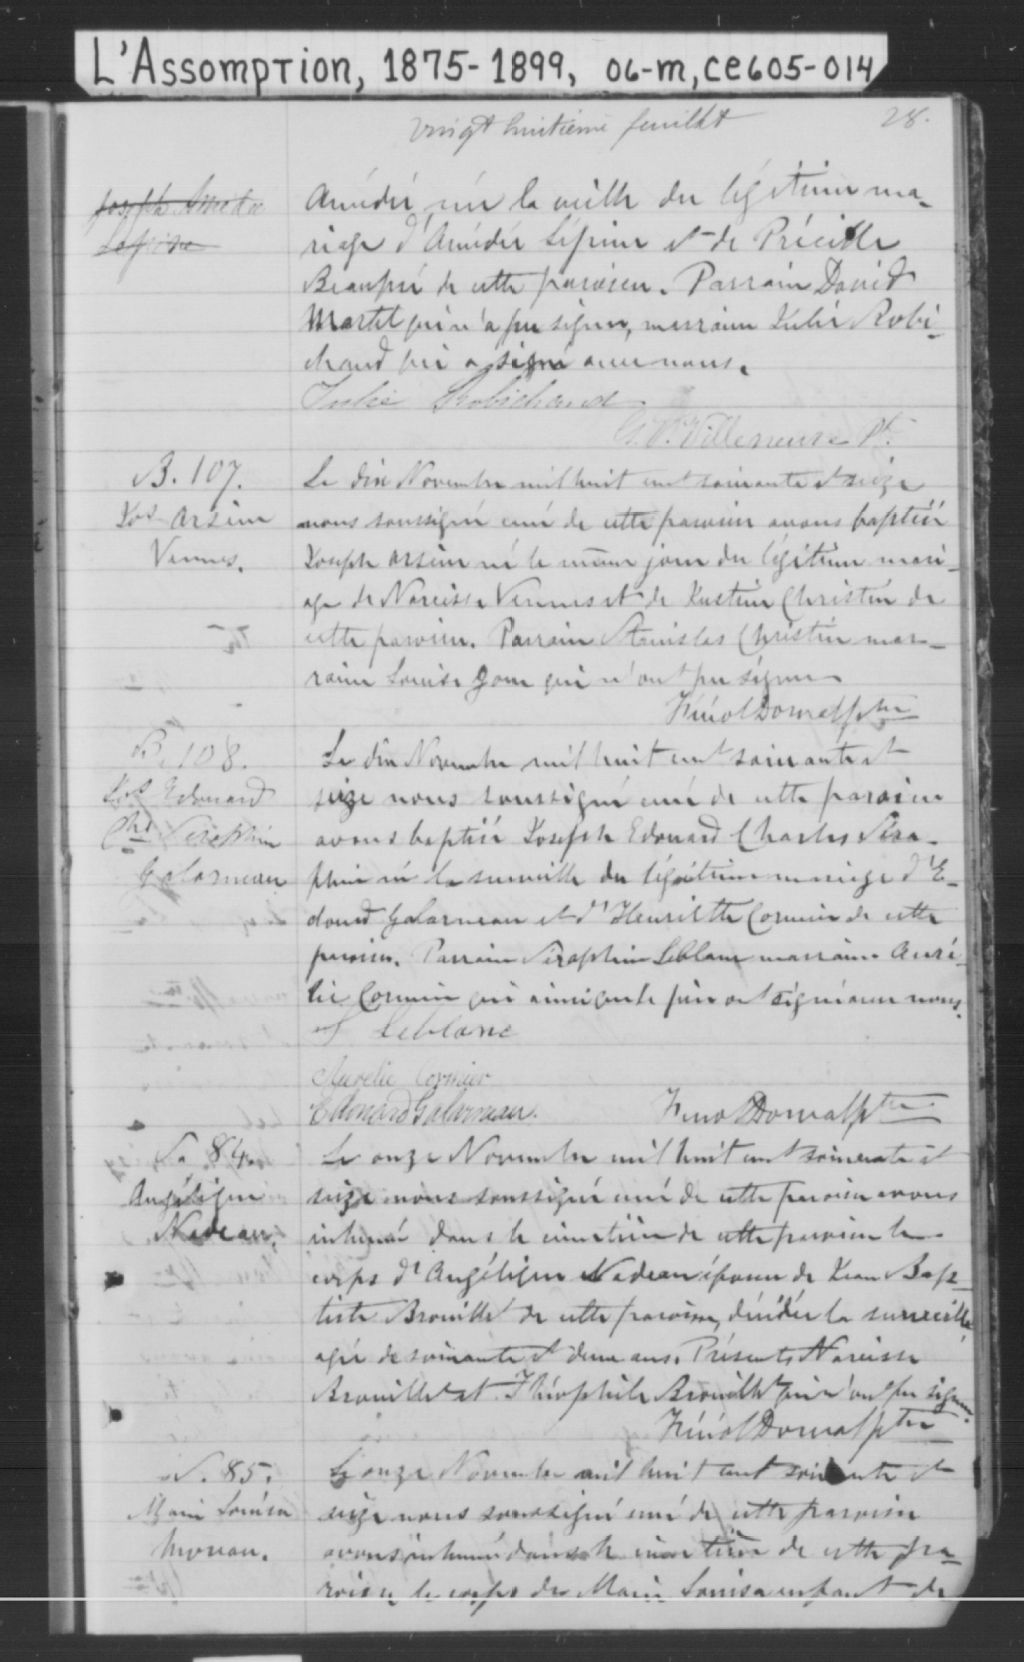 L'Assomption, 1875-1899, 06-M, CE605-014
vingt huitième feuillet 28.
Joseph Amédée
Lépine
Amédée né la veille du légitime ma-
riage d'Amédée Lépine et de Précille
Beaupré de cette paroisse. Parrain David
Martel qui n'a pu signer, marraine Julie Robi-
chaud qui a signé avec nous.
Julie Robichaud
G. Villeneuve Pt.
B. 107.
Jos Arsène
Vennes.
Le dix Novembre mil huit cent soixante et seize
nous soussigné curé de cette paroisse avons baptisé
Joseph Arsène né le même jour du légitime mari-
age de Narcisse Vennes et de Justine Christin de
cette paroisse. Parrain Stanislas Christin mar-
raine Louise qui n'ont pu signer
Ferréol Dorval ptre
B. 108.
Jos Edouard
Chs Séraphin
Galarneau
Le dix Novembre mil huit cent soixante et
seize nous soussigné curé de cette paroisse
avons baptisé Joseph Edouard Charles Séra-
phin né la surveille du légitime mariage d'E-
douard Galarneau et d'Henriette Cormier de cette
paroisse. Parrain Séraphin Leblanc marraine Auré-
lie Cormier qui ainsi que le père ont signé avec nous.
S Leblanc
Aurélie Cormier
Edouard Galarneau.
Ferréol Dorval ptre
S. 84.
Angélique
Nadeau.
Le onze Novembre mil huit cent soixante et
seize nous soussigné curé de cette paroisse avons
inhumé dans le cimetière de cette paroisse le
corps d'Angélique Nadeau épouse de Jean Bap-
tiste Brouillet de cette paroisse, décédée la surveille
agée de soixante et deux ans. Présents Narcisse
Brouillet et Théophile Brouillet qui n'ont pu signer.
Ferréol Dorval ptre
S. 85.
Marie Louisa
Moreau.
Le onze Novembre mil huit cent soixante et
seize nous soussigné curé de cette paroisse
avons inhumé dans le cimetière de cette pa-
roisse le corps de Marie Louisa enfant de